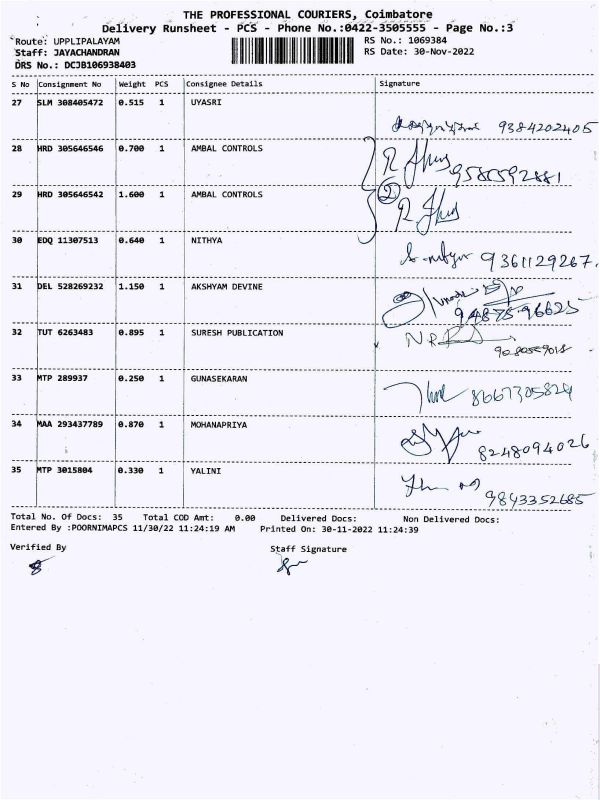 THE PROFESSIONAL COURIERS, Coimbatore
Delivery Runsheet - PCS - Phone No.:0422-3505555 - Page No.:3
Route: UPPLIPALAYAM RS No.: 1069384
Staff: JAYACHANDRAN RS Date: 30-Nov-2022
DRS No.: DCJB106938403
S No Consignment No Weight PCS Consignee Details Signature
27 SLM 308405472 0.515 1 UYASRI 9384202405
28 HRD 305646546 0.700 1 AMBAL CONTROLS
29 HRD 305646542 1.600 1 AMBAL CONTROLS 2
30 EDQ 11307513 0.640 1 NITHYA 9361129267.
31 DEL 528269232 1.150 1 AKSHYAM DEVINE 94875 96625
32 TUT 6263483 0.895 1 SURESH PUBLICATION
33 MTP 289937 0.250 1 GUNASEKARAN 8667305824
34 MAA 293437789 0.870 1 MOHANAPRIYA 8248094026
35 MTP 3015804 0.330 1 YALINI 9843352685
Total No. Of Docs: 35 Total COD Amt: 0.00 Delivered Docs: Non Delivered Docs:
Entered By :POORNIMAPCS 11/30/22 11:24:19 AM Printed On: 30-11-2022 11:24:39
Verified By Staff Signature